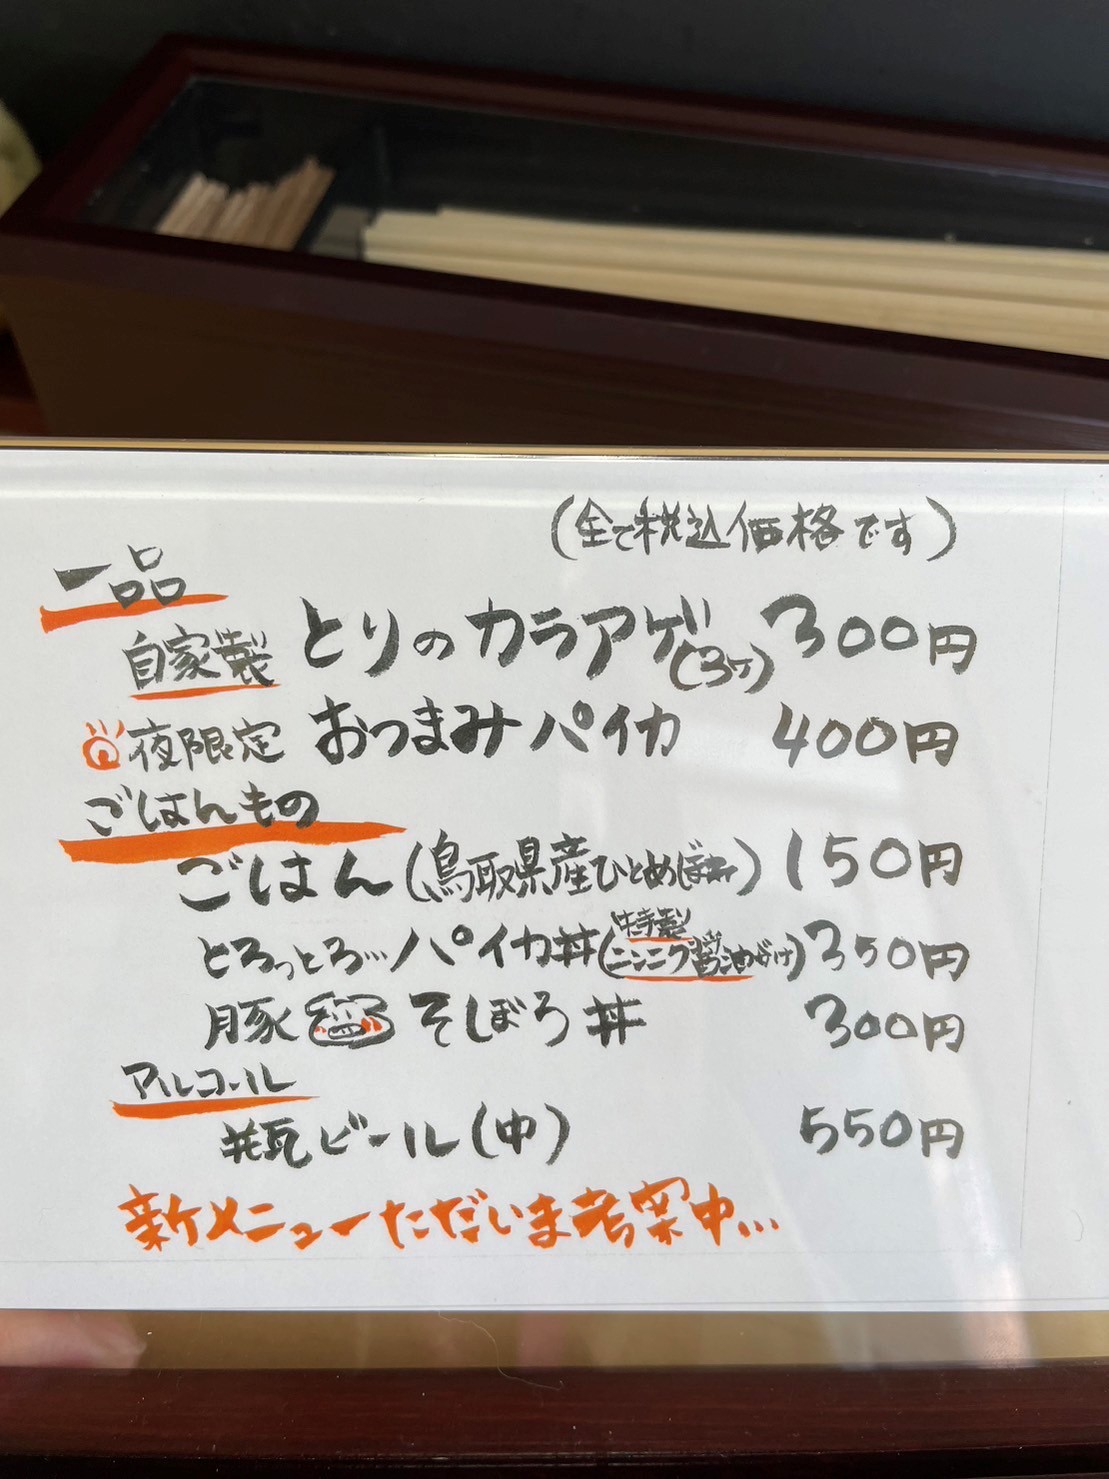 (全て税込価格です)
一品
自家製 とりのカラアゲ(3ヶ) 300円
夜限定 おつまみパイカ 400円
ごはんもの
ごはん(鳥取県産ひとめぼれ) 150円
とろっとろ…パイカ丼(特製ニンニク醤油づけ) 350円
豚そぼろ丼 300円
アルコール
瓶ビール(中) 550円
新メニューただいま考案中…